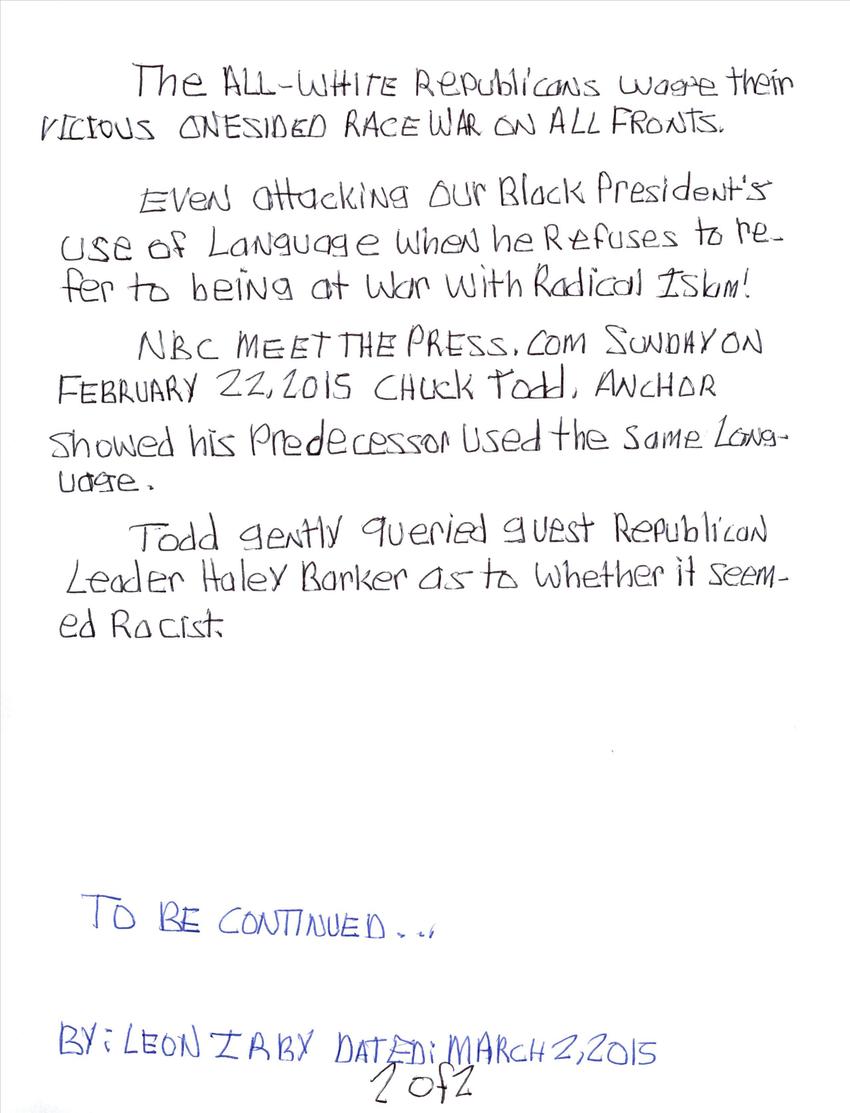 The ALL-WHITE Republicans wage their
VICIOUS ONESIDED RACE WAR ON ALL FRONTS.
EVEN attacking our Black President's
use of Language when he Refuses to re-
fer to being at war with Radical Islam!
NBC MEET THE PRESS.COM SUNDAY ON
FEBRUARY 22, 2015 CHUCK Todd, ANCHOR
showed his Predecessor used the same Lang-
uage.
Todd gently queried guest Republican
Leader Haley Barker as to whether it seem-
ed Racist.
TO BE CONTINUED...
BY: LEON IRBY DATED: MARCH 2, 2015
2 of 2